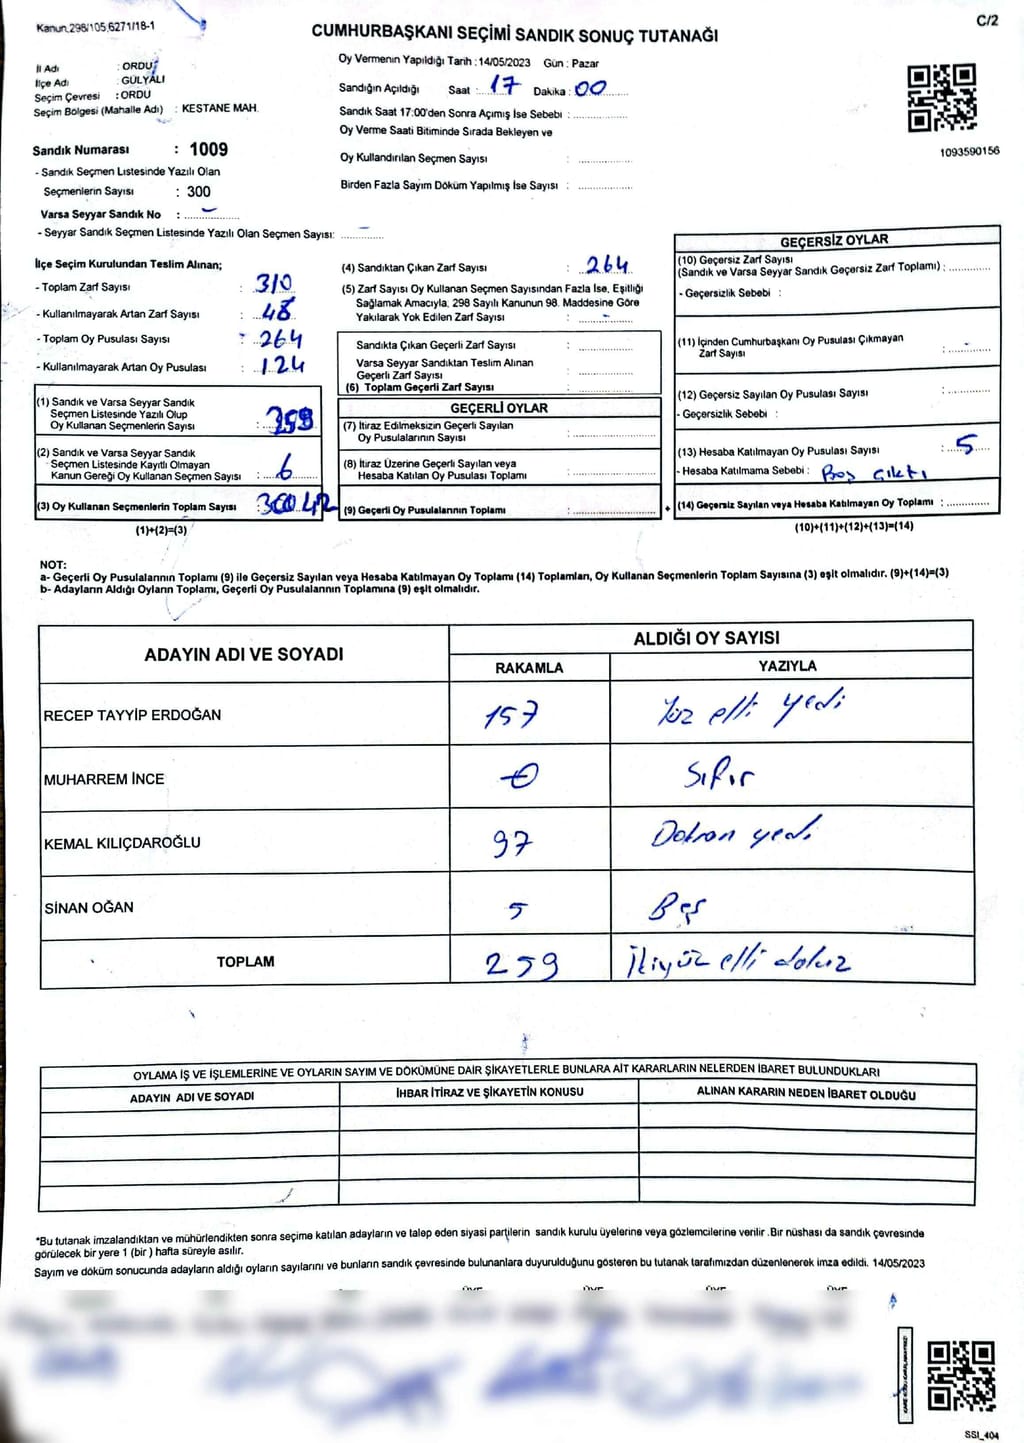 Kanun.298/105,6271/18-1
C/2
CUMHURBAŞKANI SEÇİMİ SANDIK SONUÇ TUTANAĞI
İl Adı : ORDU
İlçe Adı : GÜLYALI
Seçim Çevresi : ORDU
Seçim Bölgesi (Mahalle Adı) : KESTANE MAH.
Sandık Numarası : 1009
- Sandık Seçmen Listesinde Yazılı Olan
Seçmenlerin Sayısı : 300
Varsa Seyyar Sandık No : -
- Seyyar Sandık Seçmen Listesinde Yazılı Olan Seçmen Sayısı: -
Oy Vermenin Yapıldığı Tarih : 14/05/2023 Gün : Pazar
Sandığın Açıldığı Saat : 17 Dakika : 00
Sandık Saat 17:00'den Sonra Açımış İse Sebebi :
Oy Verme Saati Bitiminde Sırada Bekleyen ve
Oy Kullandırılan Seçmen Sayısı :
Birden Fazla Sayım Döküm Yapılmış İse Sayısı :
1093590156
İlçe Seçim Kurulundan Teslim Alınan;
- Toplam Zarf Sayısı : 310
- Kullanılmayarak Artan Zarf Sayısı :
- Toplam Oy Pusulası Sayısı : 264
- Kullanılmayarak Artan Oy Pusulası : 124
(1) Sandık ve Varsa Seyyar Sandık
Seçmen Listesinde Yazılı Olup
Oy Kullanan Seçmenlerin Sayısı :
(2) Sandık ve Varsa Seyyar Sandık
Seçmen Listesinde Kayıtlı Olmayan
Kanun Gereği Oy Kullanan Seçmen Sayısı : 6
(3) Oy Kullanan Seçmenlerin Toplam Sayısı
(1)+(2)=(3)
(4) Sandıktan Çıkan Zarf Sayısı : 264
(5) Zarf Sayısı Oy Kullanan Seçmen Sayısından Fazla İse, Eşitliği
Sağlamak Amacıyla, 298 Sayılı Kanunun 98. Maddesine Göre
Yakılarak Yok Edilen Zarf Sayısı : -
Sandıkta Çıkan Geçerli Zarf Sayısı :
Varsa Seyyar Sandıktan Teslim Alınan
Geçerli Zarf Sayısı :
(6) Toplam Geçerli Zarf Sayısı :
GEÇERLİ OYLAR
(7) İtiraz Edilmeksizin Geçerli Sayılan
Oy Pusulalarının Sayısı :
(8) İtiraz Üzerine Geçerli Sayılan veya
Hesaba Katılan Oy Pusulası Toplamı :
(9) Geçerli Oy Pusulalarının Toplamı :
GEÇERSİZ OYLAR
(10) Geçersiz Zarf Sayısı
(Sandık ve Varsa Seyyar Sandık Geçersiz Zarf Toplamı) :
- Geçersizlik Sebebi :
(11) İçinden Cumhurbaşkanı Oy Pusulası Çıkmayan
Zarf Sayısı : -
(12) Geçersiz Sayılan Oy Pusulası Sayısı :
- Geçersizlik Sebebi :
(13) Hesaba Katılmayan Oy Pusulası Sayısı : 5
- Hesaba Katılmama Sebebi : Boş çıktı
+ (14) Geçersiz Sayılan veya Hesaba Katılmayan Oy Toplamı :
(10)+(11)+(12)+(13)=(14)
NOT:
a- Geçerli Oy Pusulalarının Toplamı (9) ile Geçersiz Sayılan veya Hesaba Katılmayan Oy Toplamı (14) Toplamları, Oy Kullanan Seçmenlerin Toplam Sayısına (3) eşit olmalıdır. (9)+(14)=(3)
b- Adayların Aldığı Oyların Toplamı, Geçerli Oy Pusulalarının Toplamına (9) eşit olmalıdır.
ADAYIN ADI VE SOYADI
ALDIĞI OY SAYISI
RAKAMLA YAZIYLA
RECEP TAYYİP ERDOĞAN 157 Yüz elli yedi
MUHARREM İNCE 0 Sıfır
KEMAL KILIÇDAROĞLU 97 Doksan yedi
SİNAN OĞAN 5 Beş
TOPLAM 259 İkiyüz elli dokuz
OYLAMA İŞ VE İŞLEMLERİNE VE OYLARIN SAYIM VE DÖKÜMÜNE DAİR ŞİKAYETLERLE BUNLARA AİT KARARLARIN NELERDEN İBARET BULUNDUKLARI
ADAYIN ADI VE SOYADI İHBAR İTİRAZ VE ŞİKAYETİN KONUSU ALINAN KARARIN NEDEN İBARET OLDUĞU
*Bu tutanak imzalandıktan ve mühürlendikten sonra seçime katılan adayların ve talep eden siyasi partilerin sandık kurulu üyelerine veya gözlemcilerine verilir .Bir nüshası da sandık çevresinde
görülecek bir yere 1 (bir ) hafta süreyle asılır.
Sayım ve döküm sonucunda adayların aldığı oyların sayılarını ve bunların sandık çevresinde bulunanlara duyurulduğunu gösteren bu tutanak tarafımızdan düzenlenerek imza edildi. 14/05/2023
SSI_404